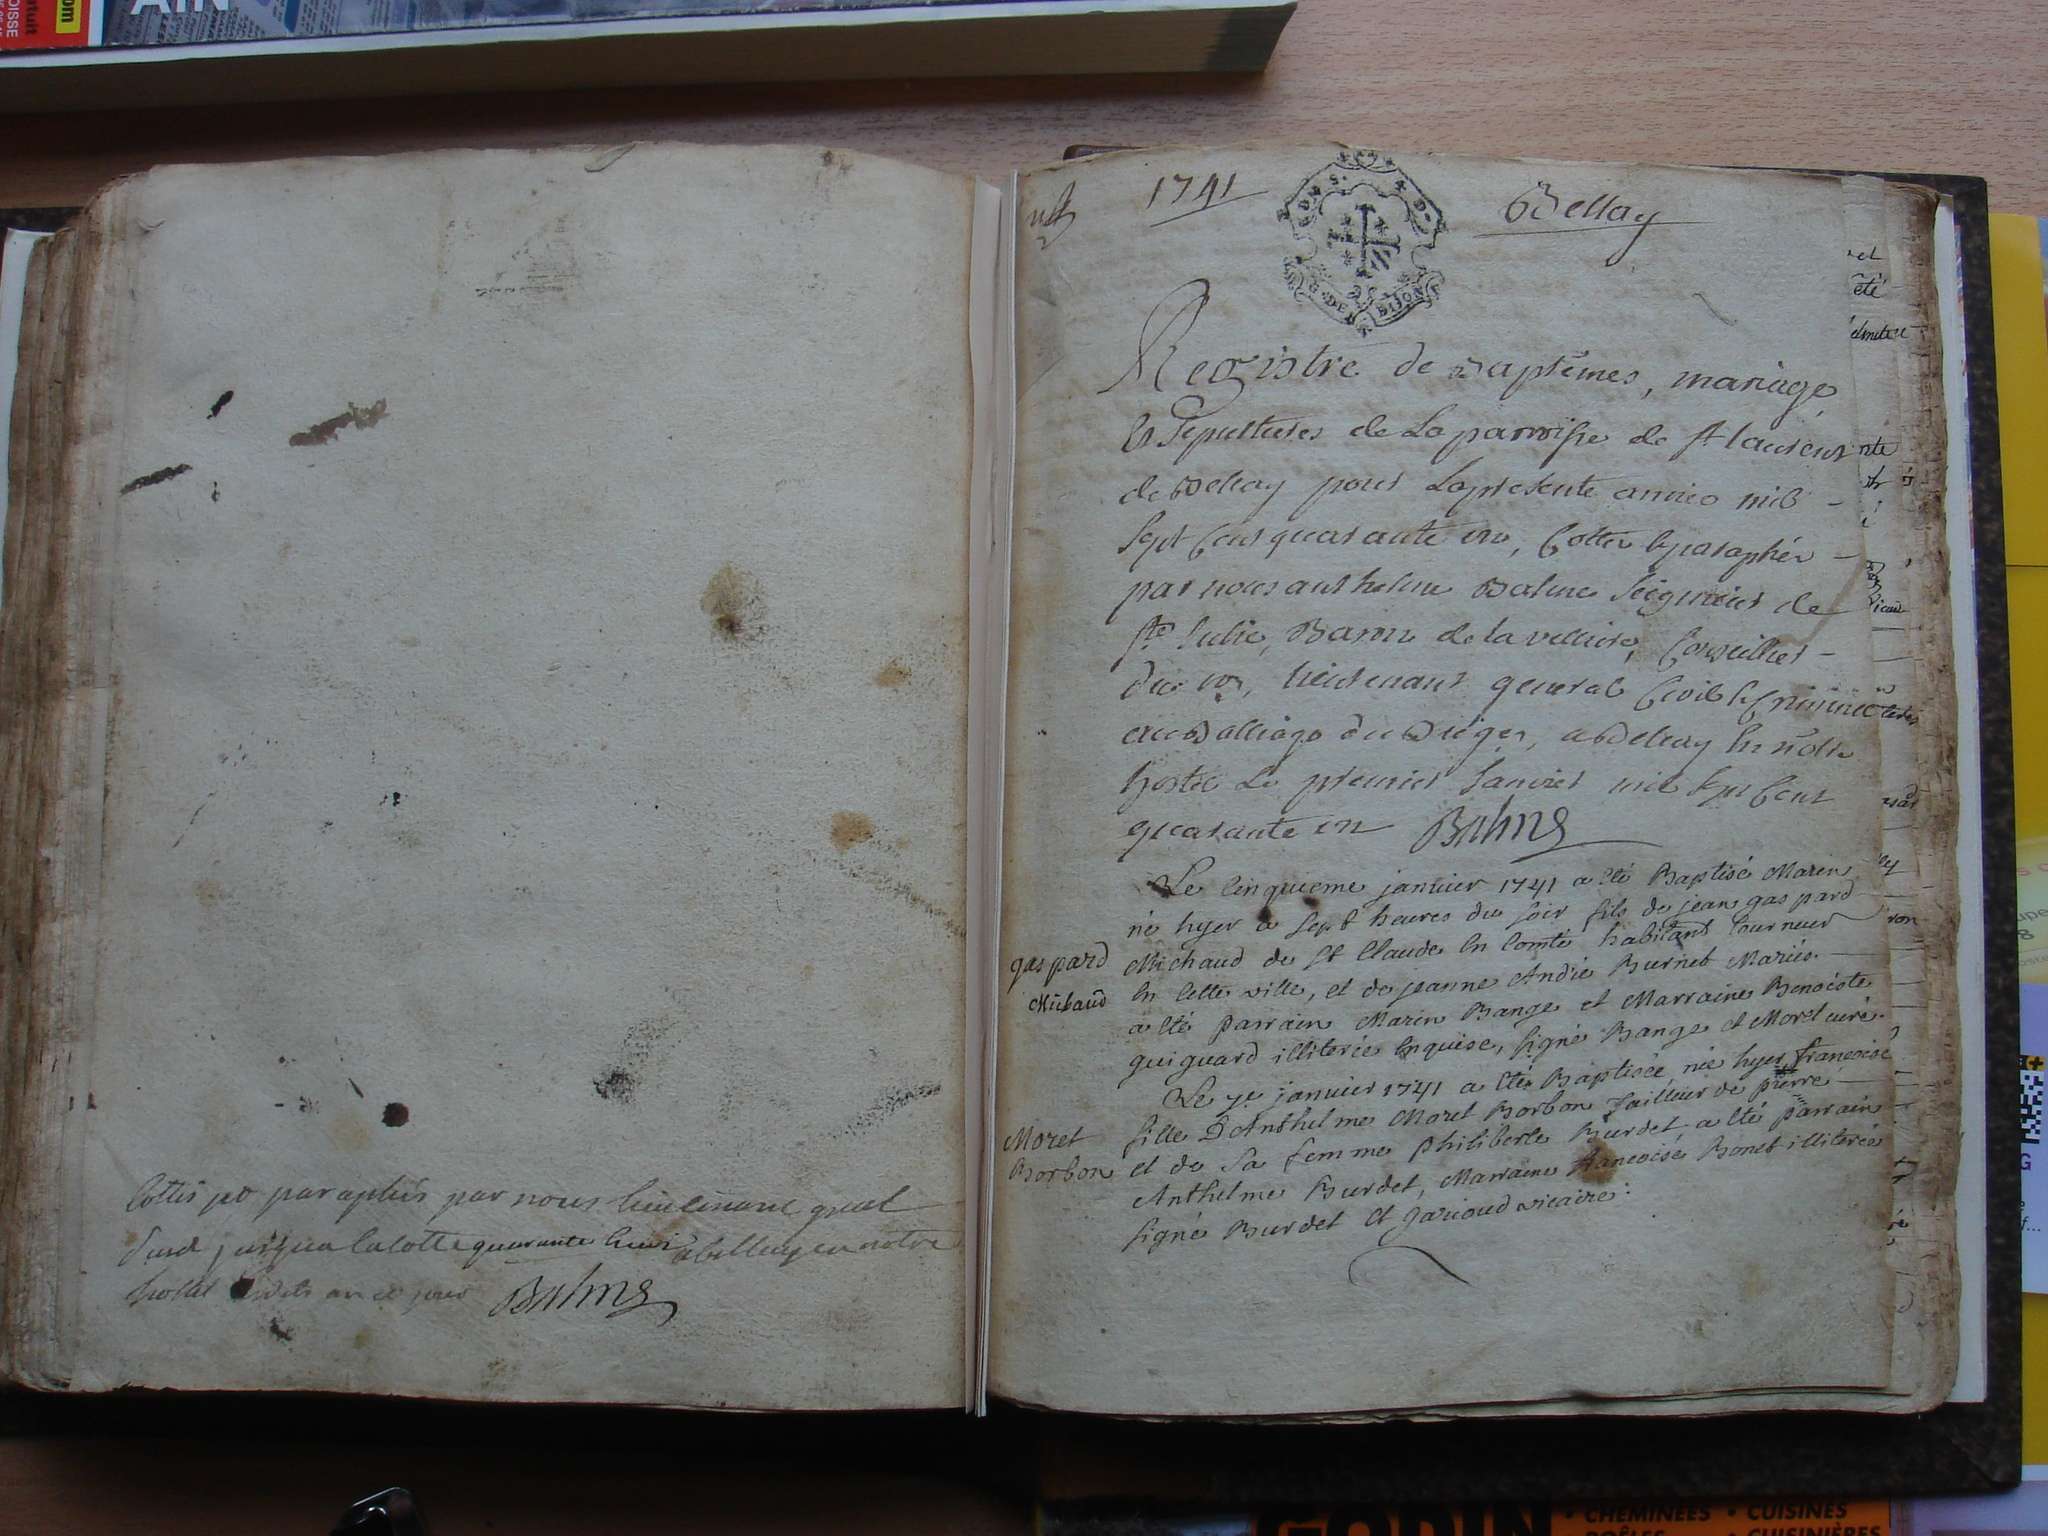 AIN
Cottés et paraphés par nous lieutenant gnal
jusqua la cotte quarante huit a belley en notre
hotel an et jour Balme
1741
Bellay
GEN. DE DIJON
Registre de Baptêmes, mariage
et Sepultures de La paroisse de st laurent
de Bellay pour La presente année mil
sept cent quarante un, Cottée et paraphée
par nous anthelme Balme seigneur de
ste Julie, Baron de la velliere, Conseiller
du roy, lieutenant general Civil et Criminel
au Balliage du Bugey, a Bellay en nôtre
hostel Le premier Janvier mil sept cent
quarante un Balme
Le cinquieme janvier 1741 a eté Baptisé Marin
né hyer a sept heures du soir fils de jean gaspard
gaspard
Michaud de st Claude en Comté habitant tourneur
Michaud
en cette ville, et de jeanne Andrée Burnet Mariés.
a eté parrain Marin Bange et Marraine Benoiste
guiguard illiterée enquise, signé Bange et Moret curé.
Le 7e janvier 1741 a eté Baptisée née hyer francoise
fille D'Anthelme Moret Borbon tailleur de pierre
Moret
et de sa femme philiberte Burdet, a eté parrain
Borbon
Anthelme Burdet, Marraine francoise Bonet illiterée
signé Burdet et garioud vicaire.
GODIN
• CHEMINÉES • CUISINES
POÊLES CUISINIÈRES